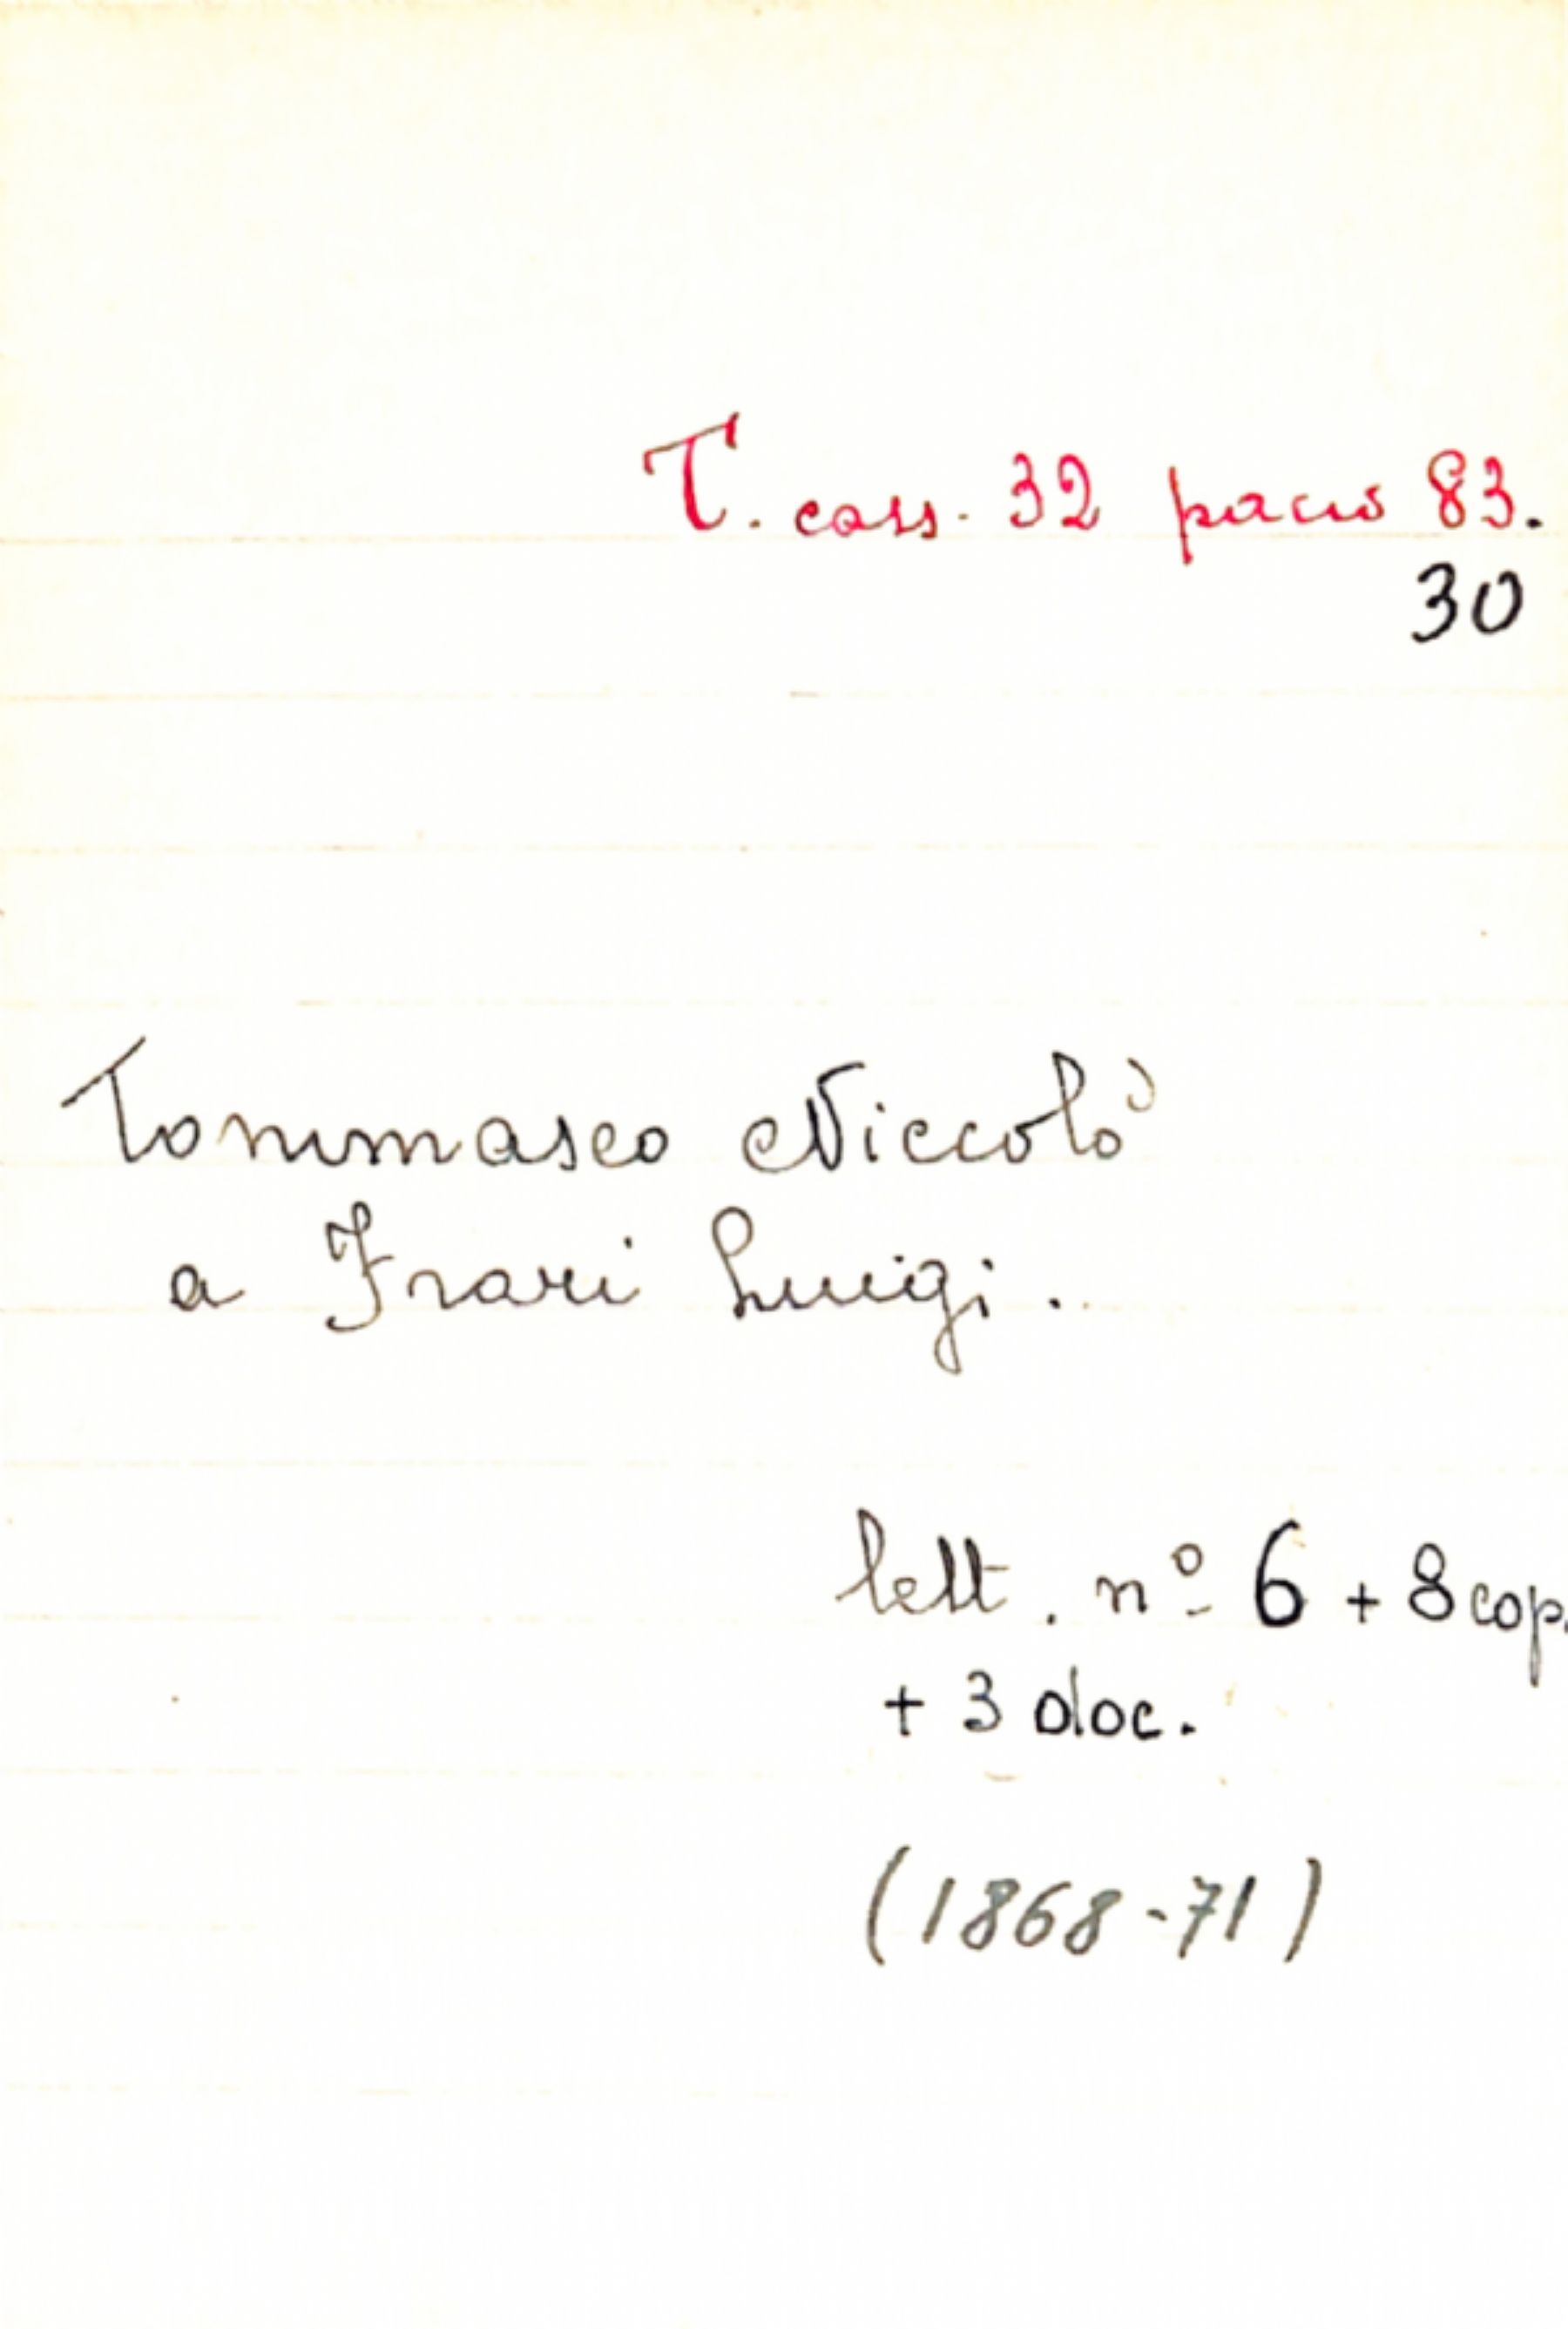 T. cass. 32 pacco 83.
30
Tommaseo Niccolò
a Frari Luigi.
lett. nº 6 + 8 cop.
+ 3 doc.
(1868-71)